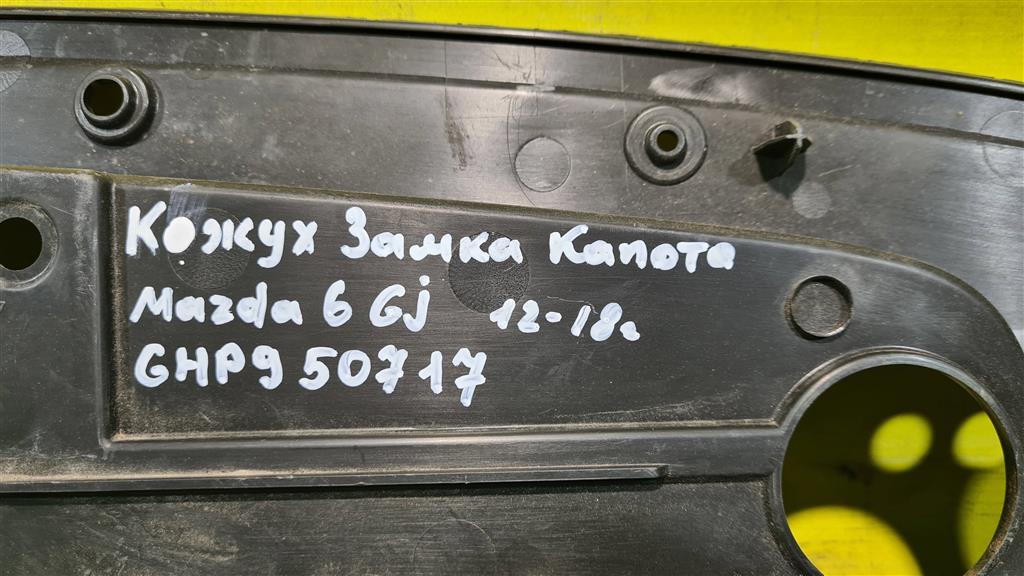 Кожух Замка Капота
Mazda 6 Gj 12-18г.
GHP9 50717